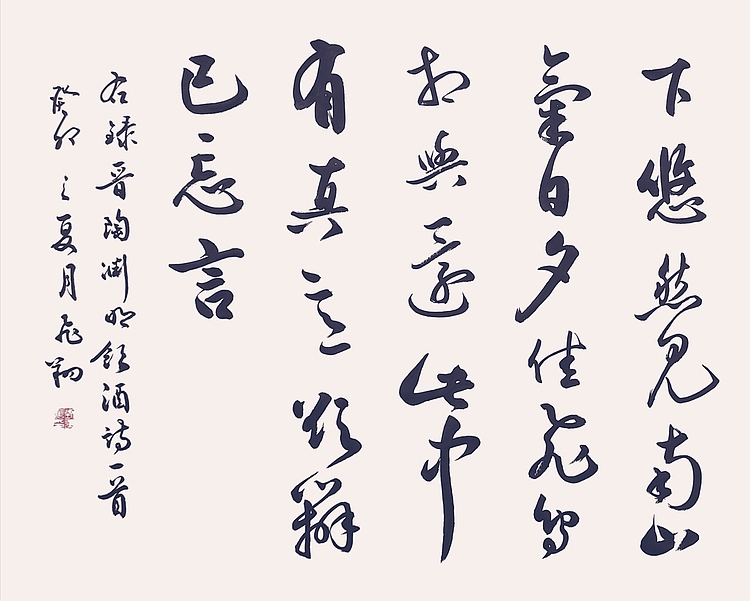 下悠然見南山
氣日夕佳飛鳥
相與還此中
有真意欲辨
已忘言
右錄晉陶淵明飲酒詩一首
癸卯之夏月飛翔